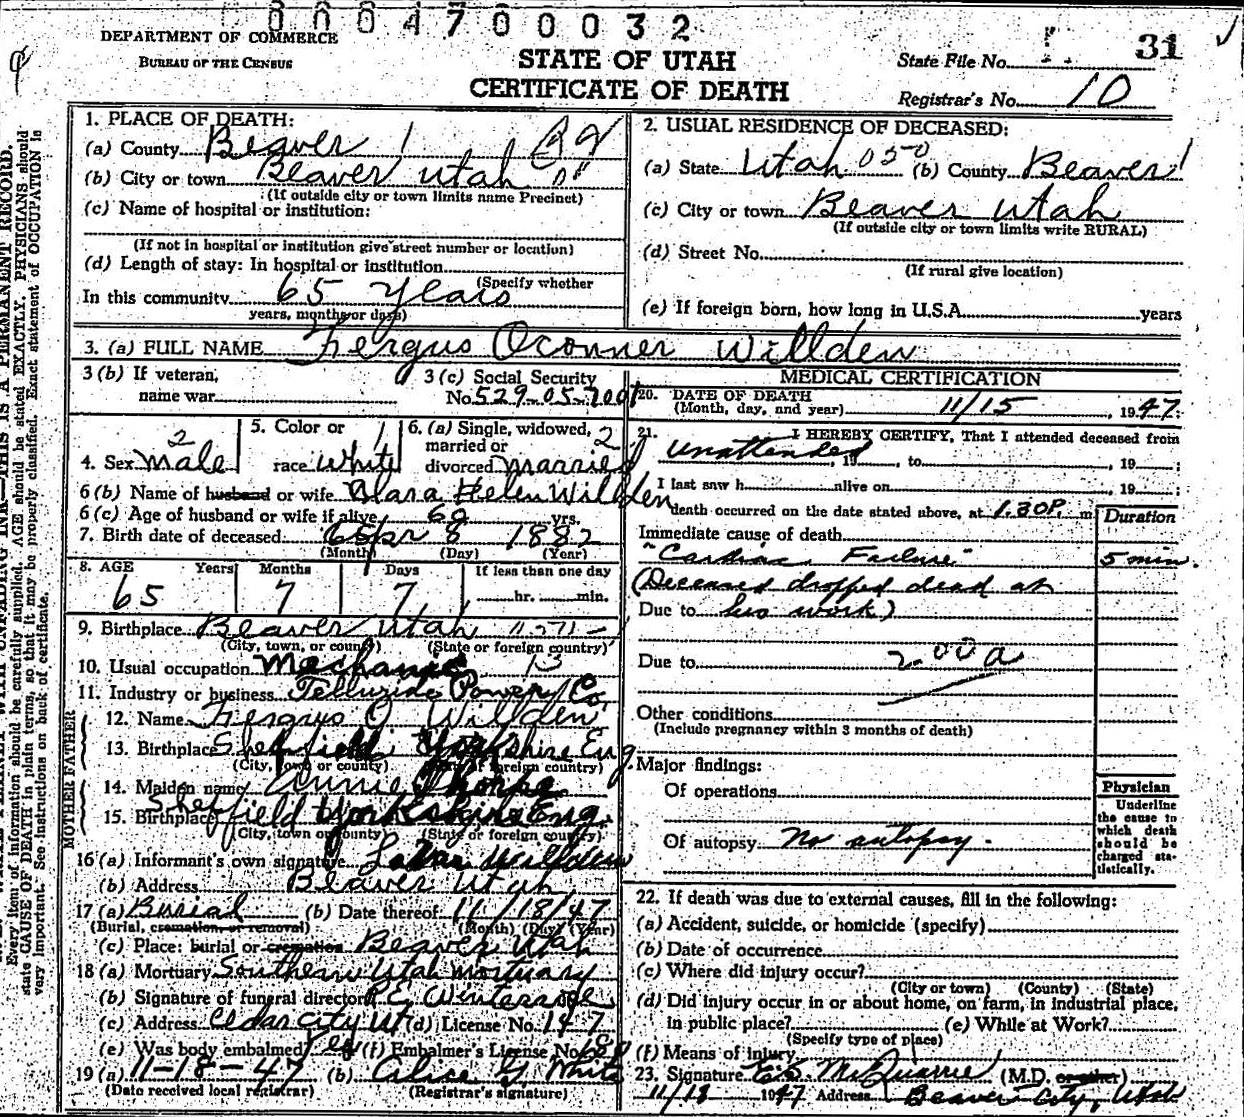 0 0 0 4 7 0 0 0 3 2
DEPARTMENT OF COMMERCE
BUREAU OF THE CENSUS
STATE OF UTAH
CERTIFICATE OF DEATH
State File No. 31
Registrar's No. 10
1. PLACE OF DEATH:
(a) County Beaver 1
(b) City or town Beaver Utah
(If outside city or town limits name Precinct)
(c) Name of hospital or institution:
(If not in hospital or institution give street number or location)
(d) Length of stay: In hospital or institution
(Specify whether
In this community 65 years
years, months or days)
2. USUAL RESIDENCE OF DECEASED:
(a) State Utah 050 (b) County Beaver 1
(c) City or town Beaver Utah
(If outside city or town limits write RURAL)
(d) Street No.
(If rural give location)
(e) If foreign born, how long in U.S.A. years
3. (a) FULL NAME Fergus Oconner Willden
3 (b) If veteran, name war
3 (c) Social Security No. 529-05-7001
4. Sex 2 Male
5. Color or race 1 White
6. (a) Single, widowed, married or divorced 2 Married
6 (b) Name of husband or wife Clara Helen Willden
6 (c) Age of husband or wife if alive yrs.
7. Birth date of deceased Apr 8 1882
(Month) (Day) (Year)
8. AGE Years Months Days If less than one day
65 7 7 hr. min.
9. Birthplace Beaver Utah
(City, town, or county) (State or foreign country)
10. Usual occupation Mechanic 13
11. Industry or business Telluride Power Co.
FATHER
12. Name Fergus O Willden
13. Birthplace Sheffield Yorkshire Eng.
(City, town or county) (State or foreign country)
MOTHER
14. Maiden name Annie Thorpe
15. Birthplace Sheffield Yorkshire Eng.
(City, town or county) (State or foreign country)
16 (a) Informant's own signature Willden
(b) Address Beaver Utah
17 (a) Burial (b) Date thereof 11/18/47
(Burial, cremation or removal) (Month) (Day) (Year)
(c) Place: burial or cremation Beaver Utah
18 (a) Mortuary Southern Utah Mortuary
(b) Signature of funeral director
(c) Address Cedar City Ut (d) License No. 147
(e) Was body embalmed? Yes (f) Embalmer's License No.
19 (a) 11-18-47 (b) Alice G. White
(Date received local registrar) (Registrar's signature)
MEDICAL CERTIFICATION
20. DATE OF DEATH
(Month, day, and year) 11/15, 1947
21. I HEREBY CERTIFY, That I attended deceased from
Unattended, 19 , to , 19 ;
I last saw h alive on , 19 ;
death occurred on the date stated above, at 1:30P. m
Duration
Immediate cause of death
"Cardiac Failure" 5 min.
(Deceased dropped dead at
Due to his work)
Due to 200a
Other conditions
(Include pregnancy within 3 months of death)
Major findings:
Of operations
Of autopsy No autopsy.
Physician
Underline the cause to which death should be charged statistically.
22. If death was due to external causes, fill in the following:
(a) Accident, suicide, or homicide (specify)
(b) Date of occurrence
(c) Where did injury occur?
(City or town) (County) (State)
(d) Did injury occur in or about home, on farm, in industrial place,
in public place? (e) While at Work?
(Specify type of place)
(f) Means of injury
23. Signature McQuarrie (M.D. or other)
11/18 1947 Address Beaver City, Utah
THIS IS A PERMANENT RECORD.
Every item of information should be carefully supplied. AGE should be stated EXACTLY. PHYSICIANS should
state CAUSE OF DEATH in plain terms, so that it may be properly classified. Exact statement of OCCUPATION is
very important. See instructions on back of certificate.